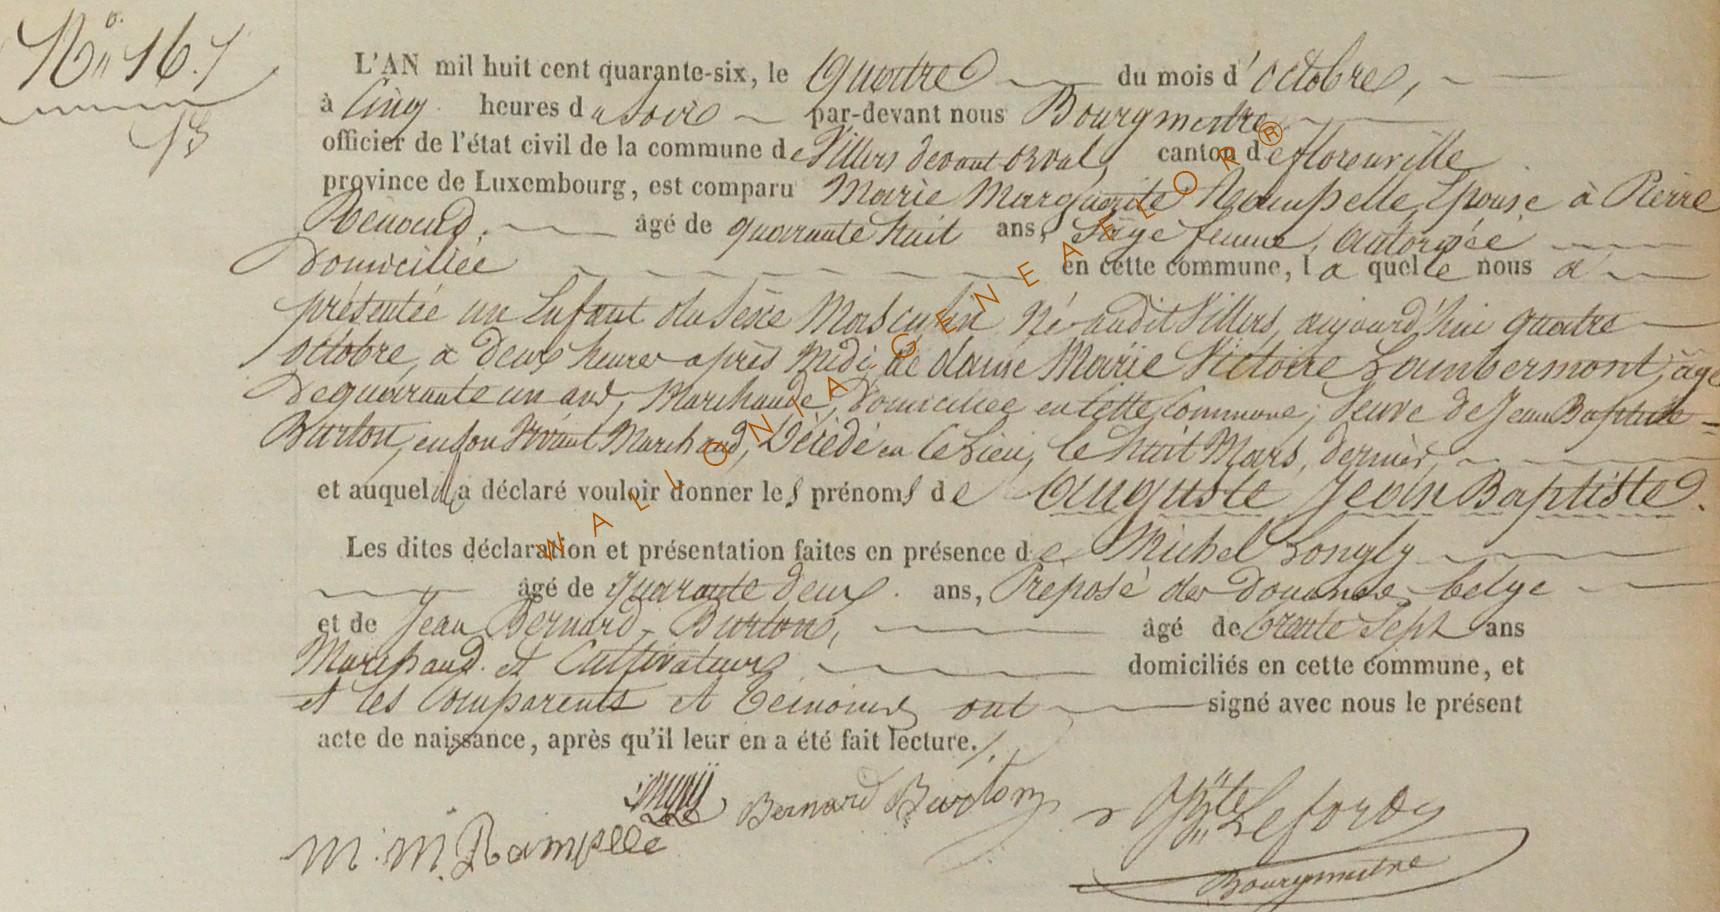 N° 16.
13
L'AN mil huit cent quarante-six, le quatre du mois d'octobre,
à Cinq heures du soir par-devant nous Bourgmestre
officier de l'état civil de la commune de Villers devant orval, canton de florenville
province de Luxembourg, est comparu Marie Marguerite Rampelle, Epouse à Pierre
Renaud, âgé de quarante huit ans, Sage femme, autorisée
Domiciliée en cette commune, laquelle nous a
présentée un Enfant du Sèxe Masculin Né audit Villers, aujourd'hui quatre
octobre, à deux heures après Midi, de dame Marie Victoire Lambermont, âgé
De quarante un ans, Marchande, Domiciliée en cette Commune, Veuve de Jean Baptiste
Burton, en son Vivant Marchand, Décédé en ce Lieu, le huit Mars, dernier,
et auquel a déclaré vouloir donner les prénoms de Auguste Jean Baptiste.
Les dites déclaration et présentation faites en présence de Michel Longly
âgé de quarante deux ans, Préposé des Douanes belge
et de Jean Bernard Burton, âgé de trente Sept ans
Marchand et Cultivateurs domiciliés en cette commune, et
et les Comparents et Témoins ont signé avec nous le présent
acte de naissance, après qu'il leur en a été fait lecture.
Bernard Burton
M. M. Rampelle
Bourgmestre
WALLONIA GENEALOR®